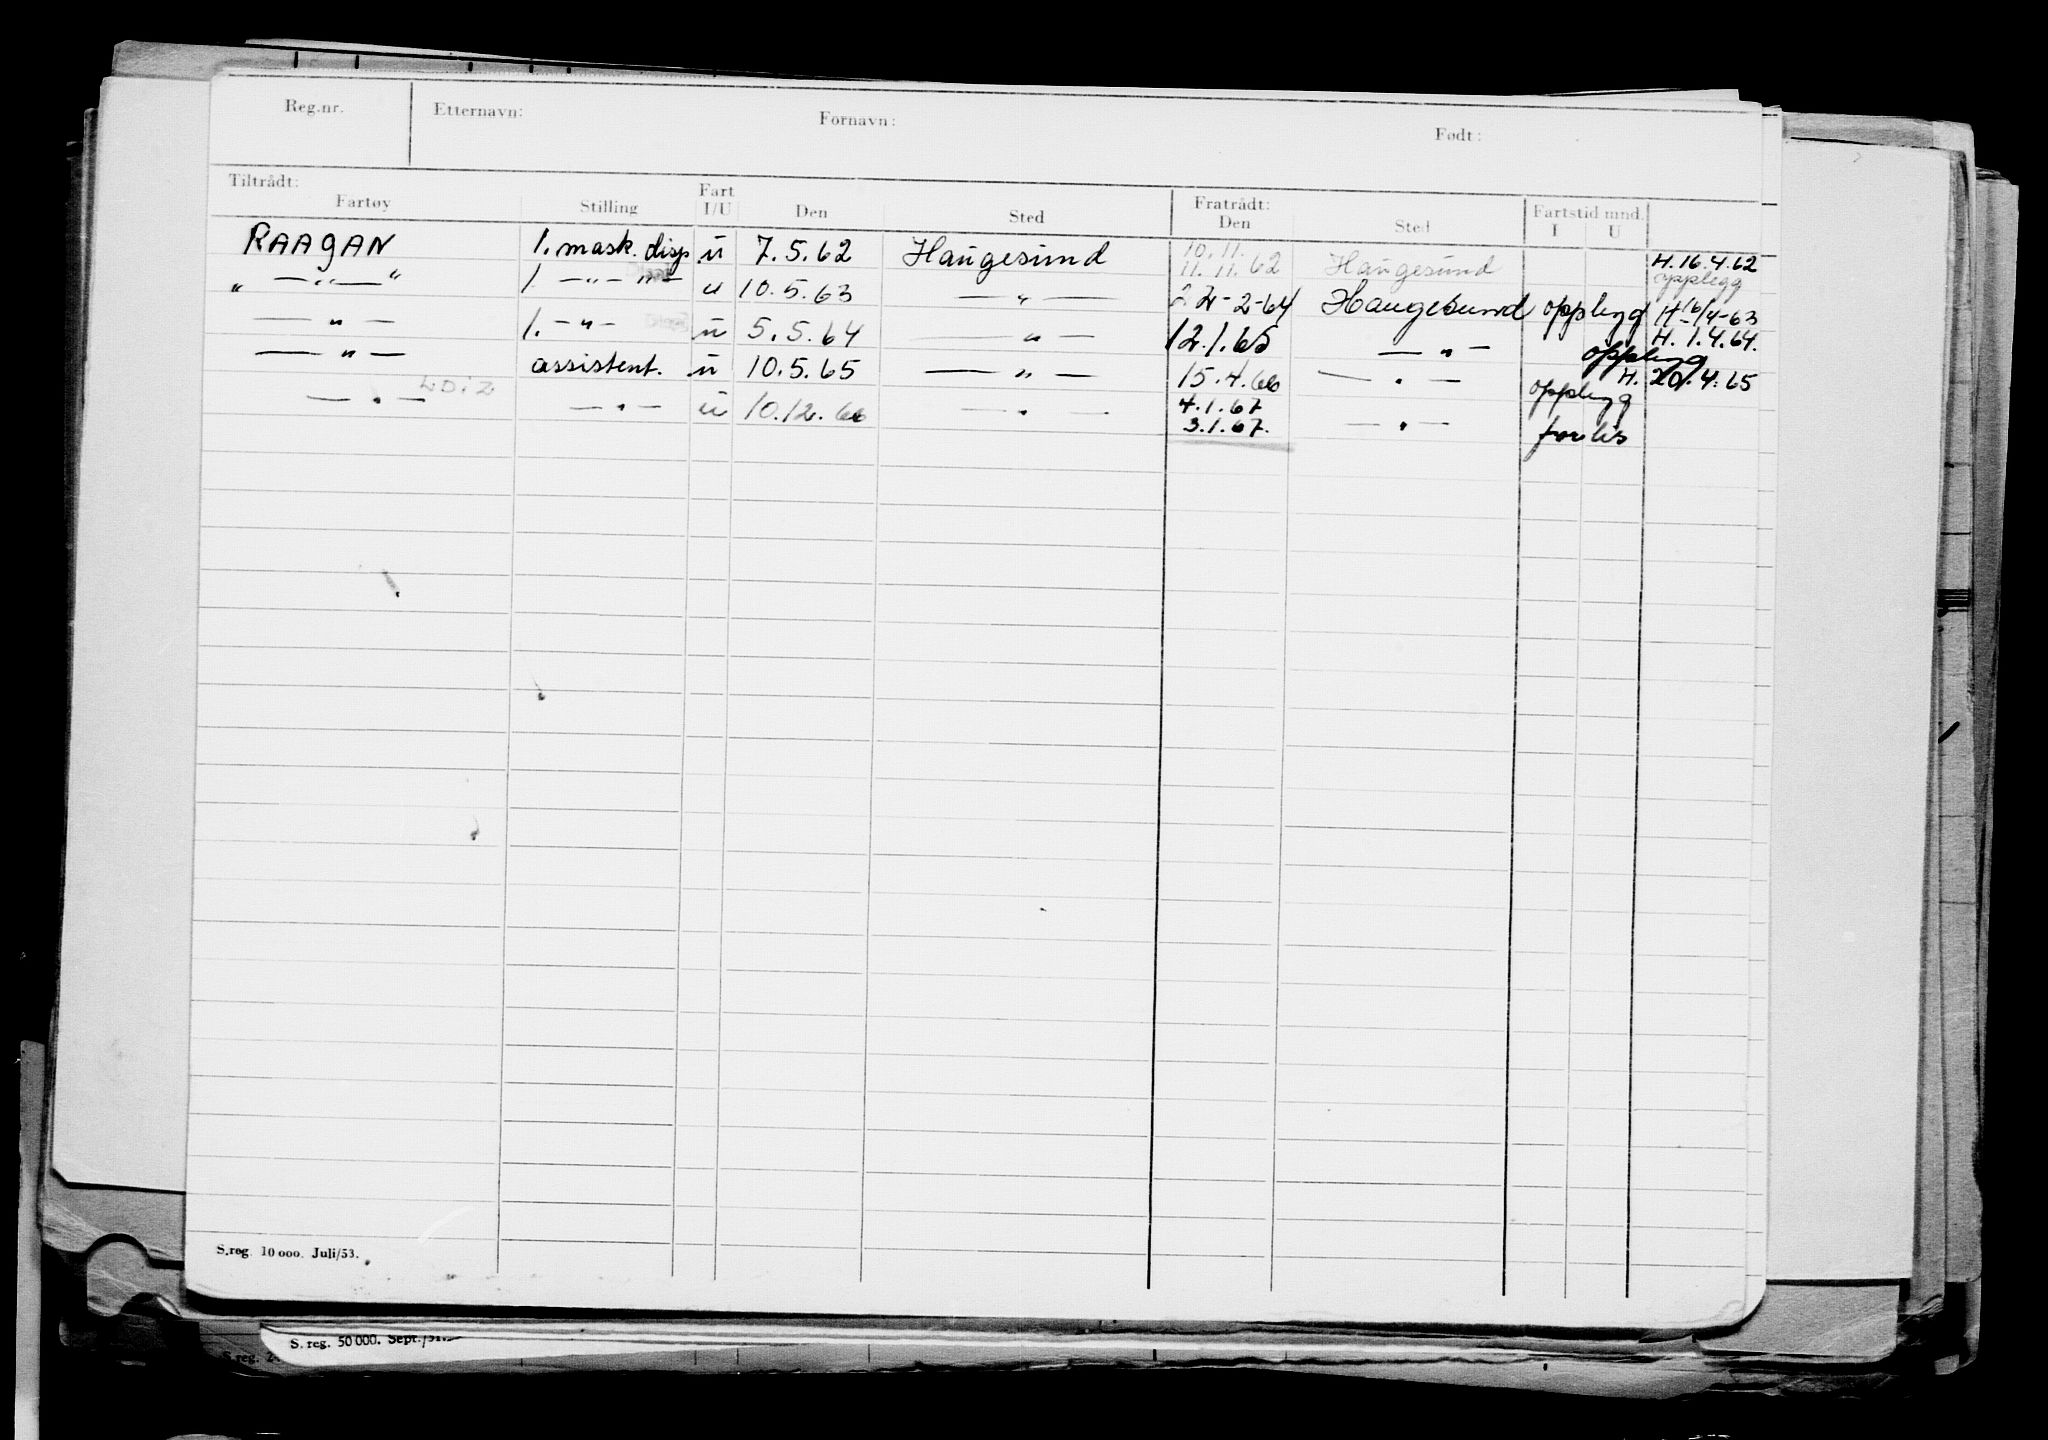 Reg.nr. Etternavn: Fornavn: Født:
Tiltrådt: Fratrådt: Fartstid mnd.
Fartøy Stilling Fart I/U Den Sted Den Sted I U
RAAGAN 1. mask. disp. u 7.5.62 Haugesund 10.11. 11.11.62 Haugesund H. 16.4.62 opplegg
" — " — " 1. — " — " — u 10.5.63 — " — 2-64 Haugesund opplegg H. 16/4-63
— " — 1. — " — u 5.5.64 — " — 12.1.65 — " — opplegg H. 1.4.64.
— " — assistent. u 10.5.65 — " — 15.4.66 — " — opplegg H. 20.4.65
— " — LDIZ — " — u 10.12.66 — " — 4.1.67 3.1.67. — " — forlis
S.reg. 10 000. Juli/53.
S. reg. 50 000. Sept./51.
S.reg.